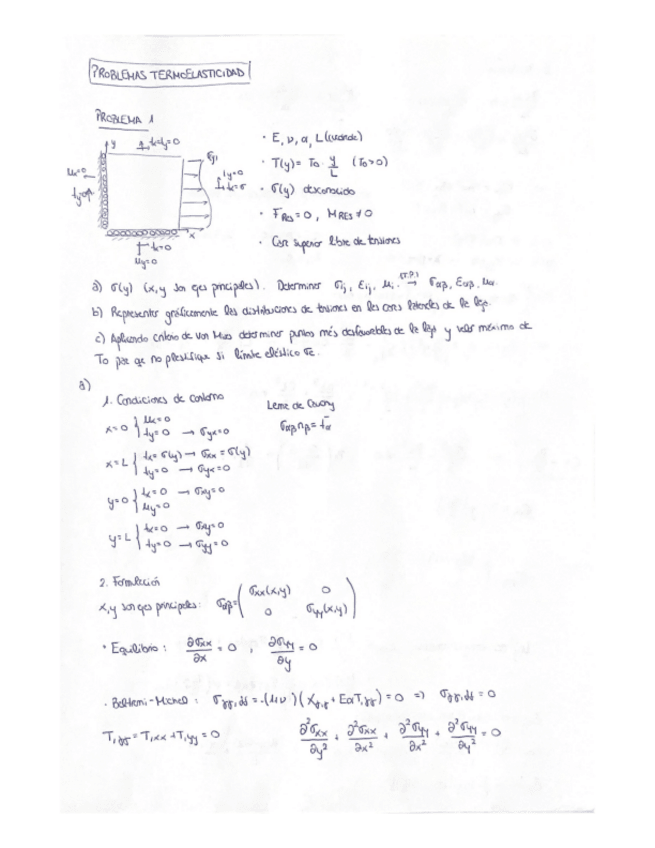 PROBLEMAS TERMOELASTICIDAD
PROBLEMA 1
y
tx=ty=0
ux=0
ty=0
ty=0
tx=σ
x
tx=0
uy=0
· E, ν, α, L (cuadrado)
· T(y) = To y/L (To>0)
· σ(y) desconocido
· FRES = 0, MRES ≠ 0
· Cara superior libre de tensiones
a) σ(y) (x,y son ejes principales). Determinar σij, εij, ui (T.P.) → σαβ, εαβ, uα.
b) Representar gráficamente las distribuciones de tensiones en las caras laterales de la laja.
c) Aplicando criterio de von Mises determinar puntos más desfavorables de la laja y valor máximo de
To para que no plastifique si límite elástico σe.
a)
1. Condiciones de contorno
Lema de Cauchy
σαβ nβ = tα
x=0 { ux=0
ty=0 → σyx=0
x=L { tx=σ(y) → σxx=σ(y)
ty=0 → σyx=0
y=0 { tx=0 → σxy=0
uy=0
y=L { tx=0 → σxy=0
ty=0 → σyy=0
2. Formulación
x,y son ejes principales: σαβ = ( σxx(x,y) 0
0 σyy(x,y) )
· Equilibrio: ∂σxx/∂x = 0, ∂σyy/∂y = 0
· Beltrami-Michell: σγγ,δδ = -(1+ν)(Xγ,γ + EαT,γγ) = 0 ⇒ σγγ,δδ = 0
T,γγ = T,xx + T,yy = 0
∂²σxx/∂y² + ∂²σxx/∂x² + ∂²σyy/∂x² + ∂²σyy/∂y² = 0